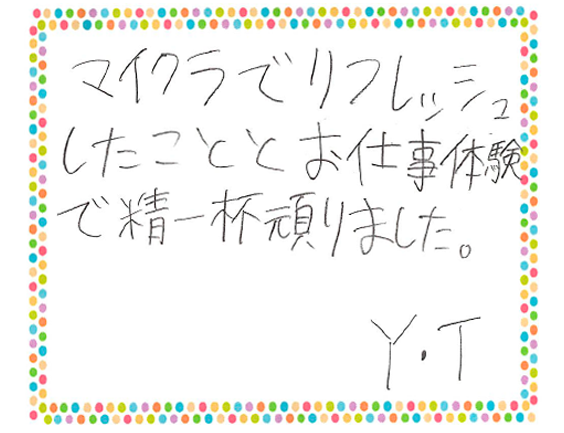 マイクラでリフレッシュ
したこととお仕事体験
で精一杯頑りました。
Y・T